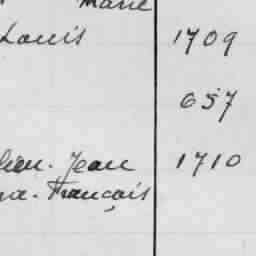 Marie
Louis 1709
657
lien. Jean 1710
François